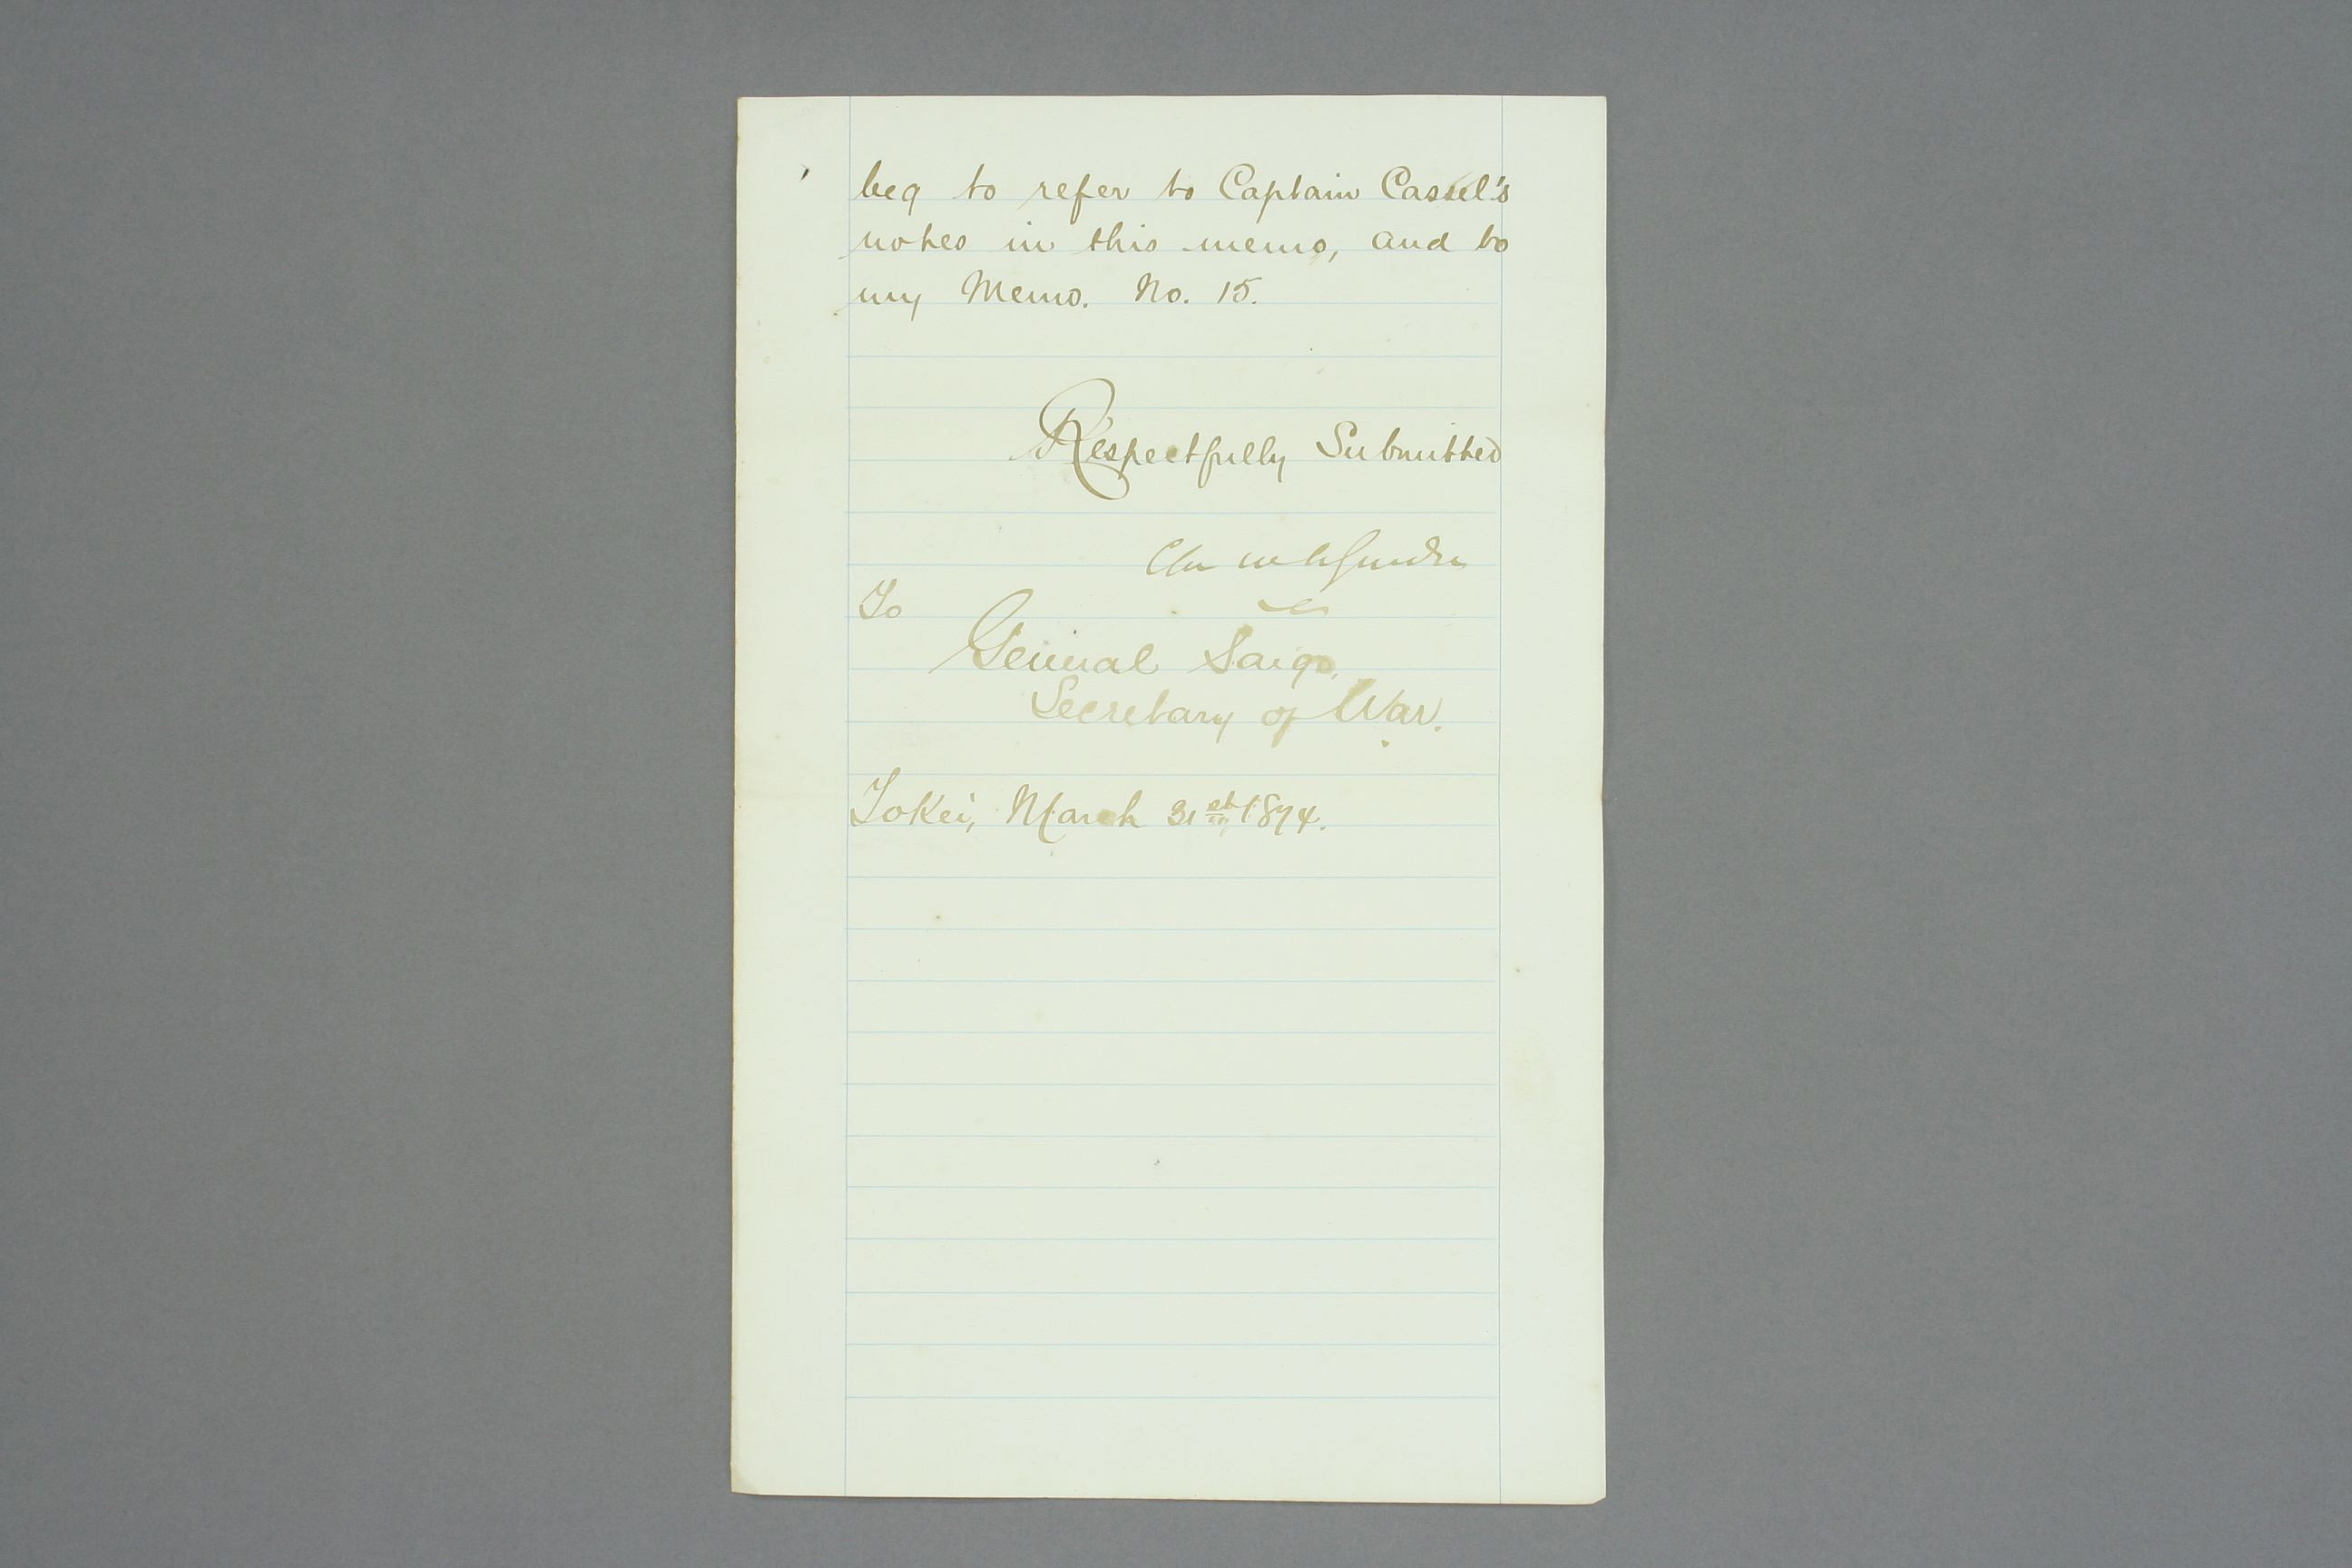 beg to refer to Captain Cassel's
notes in this memo, and to
my Memo. No. 15.
Respectfully Submitted
To
General Saigo,
Secretary of War.
Tokei, March 31st 1874.